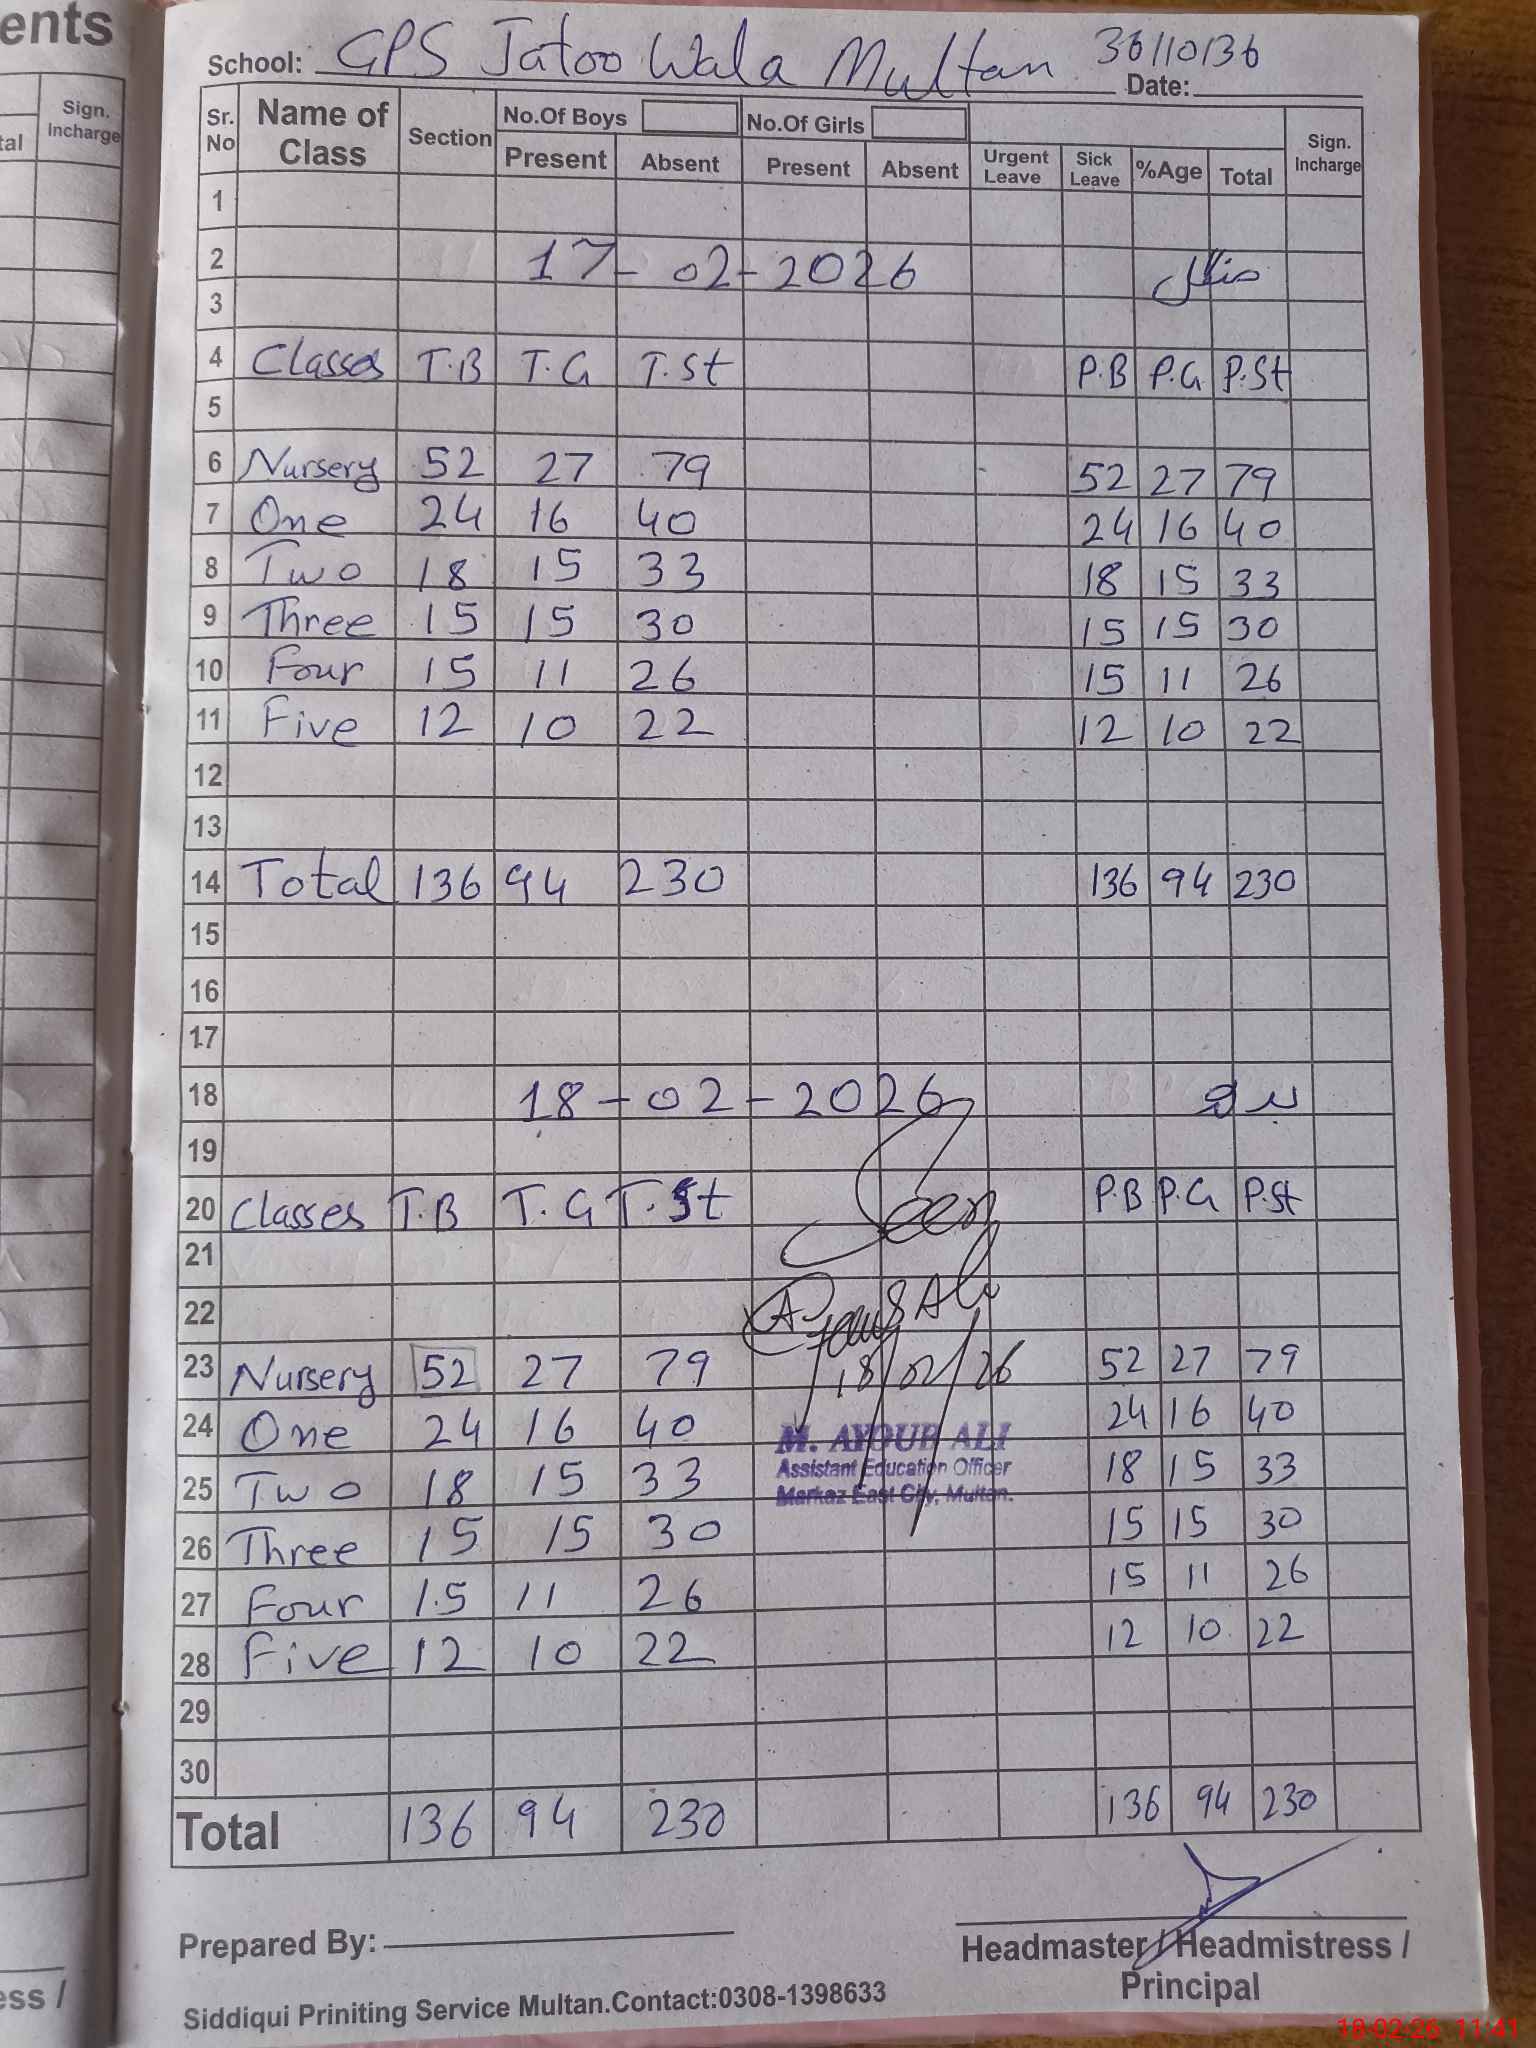 ents
Sign.
Incharge
tal
School: GPS Jatoo Wala Multan 36110136
Date:
Sr. No Name of Class Section No.Of Boys No.Of Girls Sign. Incharge
Present Absent Present Absent Urgent Leave Sick Leave %Age Total
1
2 17-02-2026 منگل
3
4 Classes T.B T.G T.St P.B P.G P.St
5
6 Nursery 52 27 79 52 27 79
7 One 24 16 40 24 16 40
8 Two 18 15 33 18 15 33
9 Three 15 15 30 15 15 30
10 Four 15 11 26 15 11 26
11 Five 12 10 22 12 10 22
12
13
14 Total 136 94 230 136 94 230
15
16
17
18 18-02-2026 بدھ
19
20 Classes T.B T.G T.St P.B P.G P.St
Seen
21
22
23 Nursery 52 27 79 18/02/26 52 27 79
24 One 24 16 40 24 16 40
M. AYOUB ALI
25 Two 18 15 33 18 15 33
Assistant Education Officer
Markaz East City, Multan.
26 Three 15 15 30 15 15 30
27 Four 15 11 26 15 11 26
28 Five 12 10 22 12 10 22
29
30
Total 136 94 230 136 94 230
Prepared By:
Headmaster / Headmistress /
Principal
ess /
Siddiqui Priniting Service Multan.Contact:0308-1398633
18-02-26 11:41